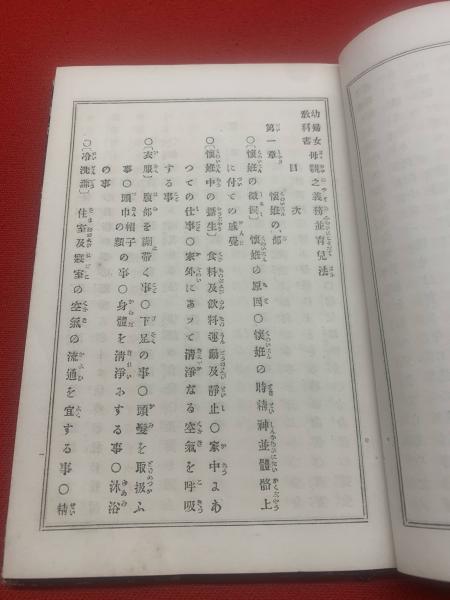 幼婦女
教科書 母親之義務並育兒法
目次
第一章 懷姙の部
○〔懷姙の徵候〕 懷姙の原因○懷姙の時精神並體骼上
に付ての感覺
○〔懷姙中の攝生〕 食料及飮料運動及靜止○家中にあ
つての仕事○家外にあつて淸淨なる空氣を呼吸
する事
○〔衣服〕 腹部を綳帶く事○下足の事○頭髮を取扱ふ
事○頭巾帽子の類の事○身體を淸淨にする事○沐浴
の事
○〔冷洗滌〕 住室及寢室の空氣の流通を宜する事○精